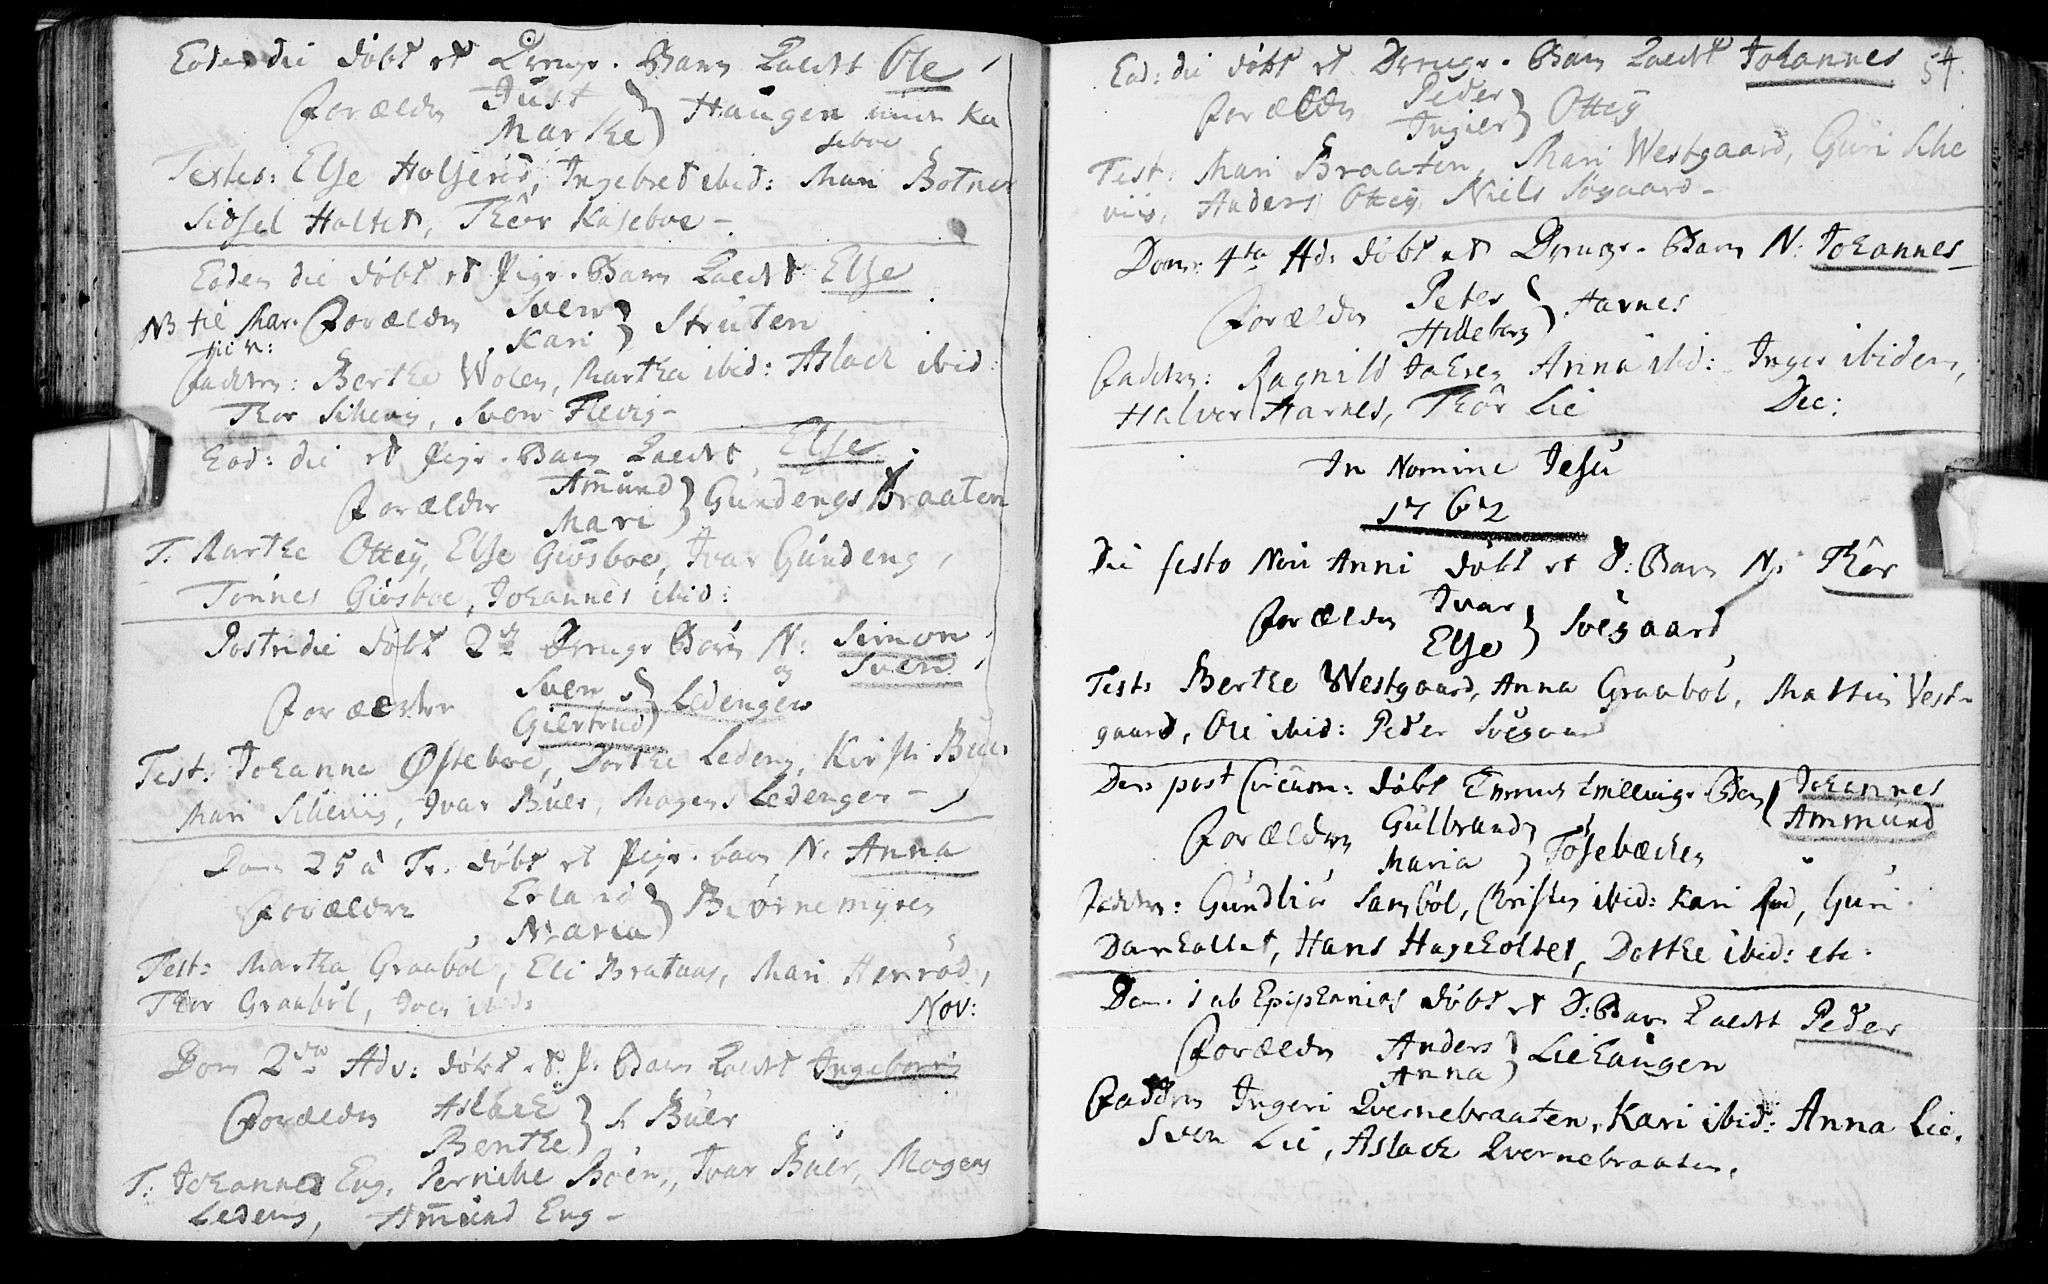 Eodem die döbt et Drenge-Barn kaldt Ole
Forældre Just Marthe } Haugen under Ka
seboe
Testes: Else Holserud, Ingebret ibid: Mari Botner
Sidsel Holtet, Thor Kaseboe -
Eodem die döbt et Pige-Barn kaldt Else
NB til Mar. Forældre Sven Kari } Struten
Faddere: Berthe Wolen, Martha ibid: Aslach ibid:
Thor Schevig, Sven Flevig -
Eod: die et Pige-Barn kaldt Else
Forældre Amund Mari } Gundengs Braaten
T. Marthe Ottey, Else Giösboe, Ivar Gundeng,
Tönnes Giösboe, Johannes ibid:
Postridie döbt 2de Drenge Börn N: Simon
og Sven
Forældre Sven Giertrud } Ledengen
Test: Johanna Østeboe, Dorthe Ledeng, Kirsti Buer
Mari Scheviig, Ivar Buer, Mogens Ledengen -
Dom 25 à Tr. döbt et Pige-barn N: Anna
Forældre Erland Maria } Biörnemyren
Test: Martha Graaböl, Eli Brataas, Mari Herröd,
Thor Graaböl, Iver ibid:
Nov:
Dom 2da Adv: döbt et P: Barn kaldt Ingeborg
Forældre Aslach Benthe } L Buer
T: Johannes Eng, Pernille Böen, Ivar Buer, Mogens
Ledeng, Amund Eng -
54.
Eod: die döbt et Drenge-Barn kaldt Johannes
Forældre Peder Ingier } Ottey
Test: Mari Braaten, Mari Westgaard, Guri Sche
viis, Anders Ottey, Niels Sögaard -
Dom: 4ta Ad: döbt et Drenge-Barn N: Johannes
Forældre Peter Hilleborg } Harnes
Faddere: Ragnild Jahren Anna ibid: Inger ibidem,
Halvor Harnes, Thor Lie
Dec:
In Nomine Jesu
1762
Die festo Novi Anni döbt et D: Barn N: Thor
Forældre Ivar Else } Söegaard
Test: Berthe Westgaard, Anna Graaböl, Mattis Vest-
gaard, Ole ibid: Peder Söegaard
Dom post Circum: döbt Tvillinge-Börn { Johannes
Ammund
Forældre Gulbrand Maria } Tosebæchen
Faddere: Gundbiör Samböl, Christen ibid: Kari Röd, Guri
Damhollet, Hans Hageholtet, Dorthe ibid: etc.
Dom. 1 ab Epiphanias döbt et D: Barn kaldt Peder
Forældre Anders Anna } Liehaugen
Faddere Ingeri Qvernebraaten, Kari ibid: Anna Lie,
Sven Lie, Aslach Qvernebraaten.